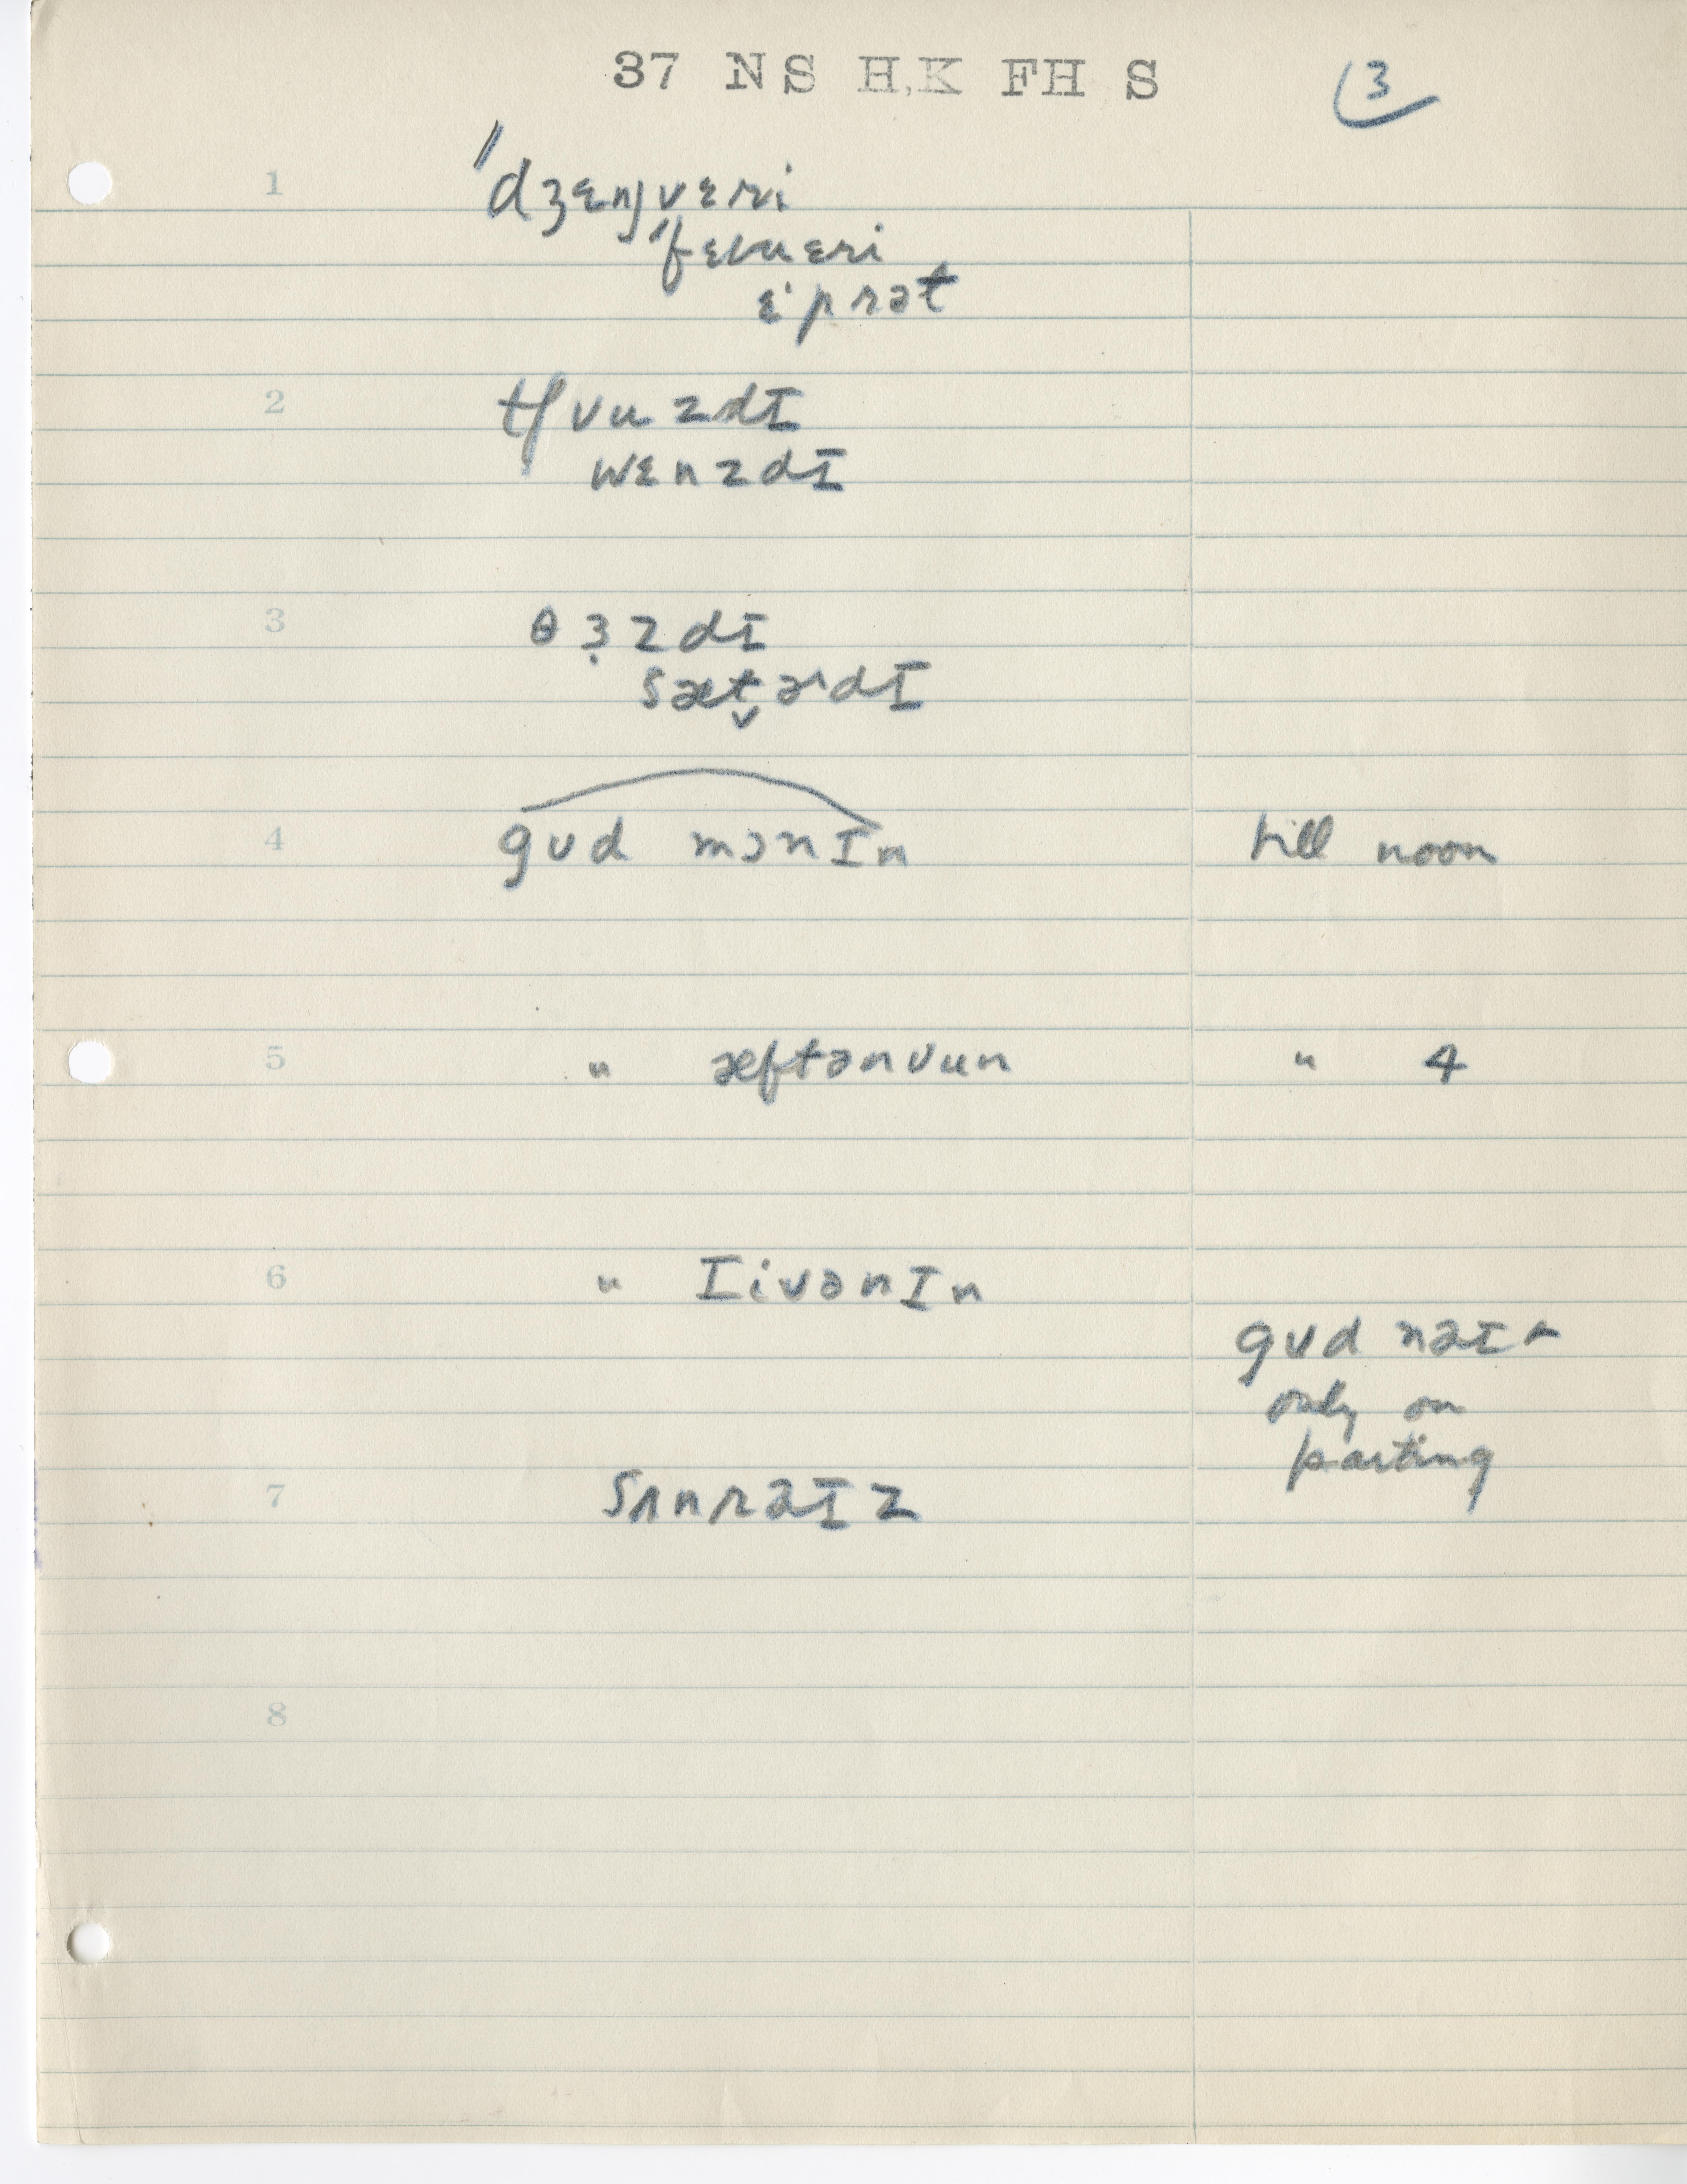 37 NS H,K FH S
3
1 ˈdʒɛnjʊɛri
ˈfɛbuɛri
ɛˈprət
2 tʃʊuzdɪ
wɛnzdɪ
3 θɜ̣zdɪ
sæt̬ɚdɪ
4 gʊd mɔnɪn till noon
5 " æftənʊun " 4
6 " ɪivənɪn
gʊd nəɪt
only on
parting
7 sʌnrəɪz
8